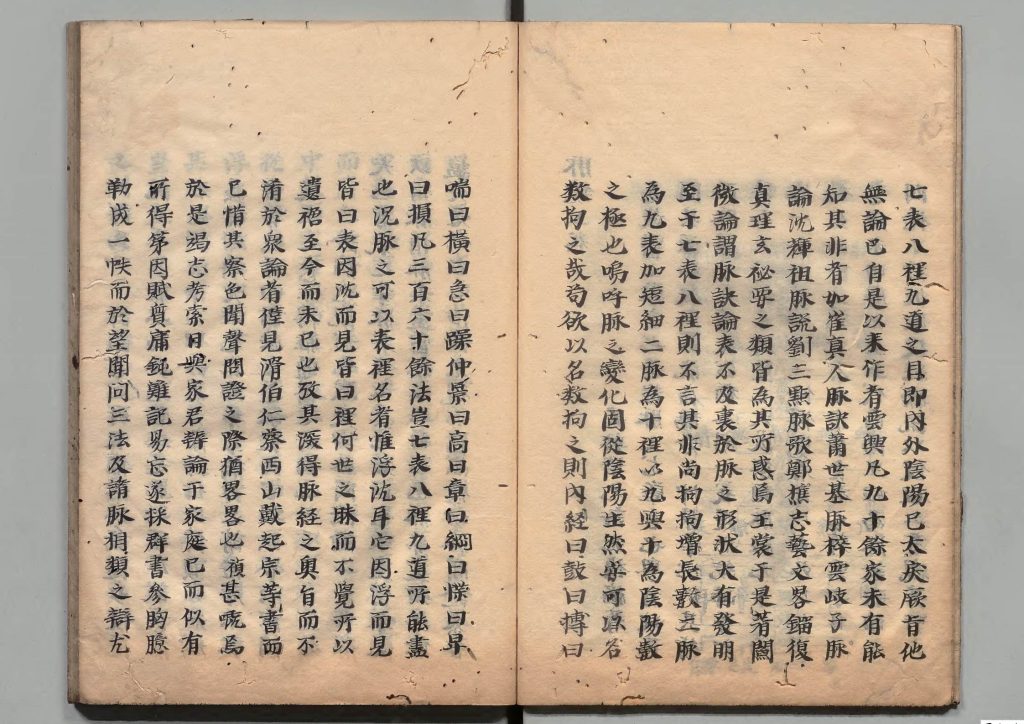 七表八裡九道之目即內外陰陽已太戾厥旨他
無論已自是以来作者雲興凡九十餘家未有能
知其非者如崔真人脉訣蕭世基脉粹雲岐子脉
論沈輝祖脉說劉三點脉歌鄭樵志藝文畧鎦復
真理玄祕要之類皆為其所惑焉王裳于是著闡
微論謂脉訣論表不及裏於脉之形狀大有發明
至于七表八裡則不言其非尚拘拘增長數二脉
為九表加短細二脉為十裡以九與十為陰陽數
之極也嗚呼脉之變化固從陰陽生然寧可以名
数拘之哉苟欲以名数拘之則內經曰鼓曰摶曰
喘曰橫曰急曰躁仲景曰高曰章曰綱曰惵曰卑
曰損凡三百六十餘法豈七表八裡九道所能盡
也况脉之可以表裡名者惟浮沈耳它因浮而見
皆曰表因沈而見皆曰裡何世之昧而不覺所以
遺禍至今而未已也攷其深得脉經之奥旨而不
淆於衆論者僅見滑伯仁蔡西山戴起宗等書而
已惜其察色聞聲問證之際猶畧畧也禎甚嘅焉
於是竭志考索日與家君辨論于家庭已而似有
所得第因賦質庸鈍雖記易忘遂採群書參胸臆
勒成一帙而於望聞問三法及諸脉相類之辯尤